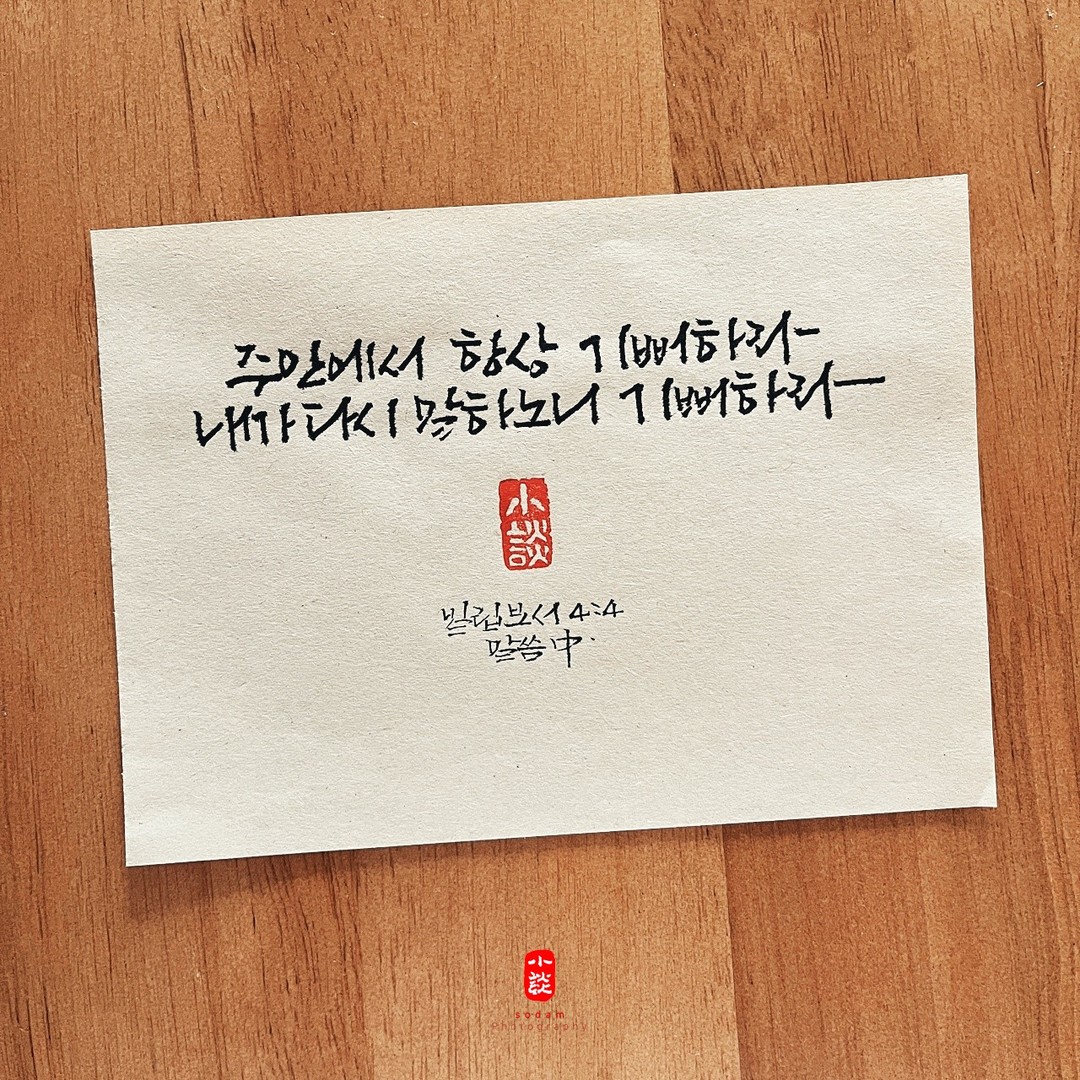 주안에서 항상 기뻐하라
내가 다시 말하노니 기뻐하라
小談
빌립보서 4:4
말씀 中.
小談
sodam
Photography